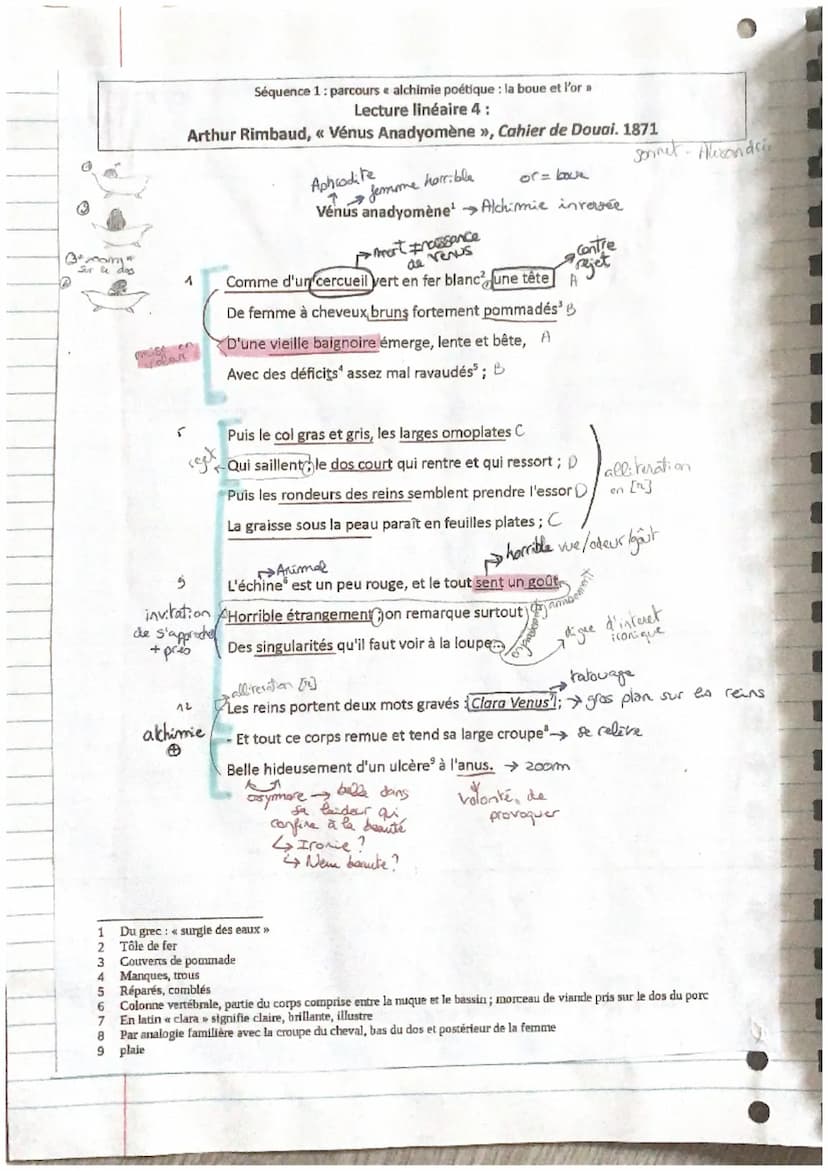 Séquence 1 : parcours « alchimie poétique : la boue et l'or »
Lecture linéaire 4 :
Arthur Rimbaud, « Vénus Anadyomène », Cahier de Douai. 1871
sonnet - Alexandrin
Aphrodite
femme horrible
or = boue
Vénus anadyomène¹ → Alchimie inversée
→ mort ≠ naissance
de venus
contre
rejet
sur le dos
1 Comme d'un cercueil vert en fer blanc², une tête A
De femme à cheveux bruns fortement pommadés³ B
mise en
D'une vieille baignoire émerge, lente et bête, A
Avec des déficits⁴ assez mal ravaudés⁵ ; B
5 Puis le col gras et gris, les larges omoplates C
rejet ← Qui saillent ; le dos court qui rentre et qui ressort ; D
alliteration
en [r]
Puis les rondeurs des reins semblent prendre l'essor D
La graisse sous la peau paraît en feuilles plates ; C
→ horrible vue/odeur/goût
→ Animal
9 L'échine⁶ est un peu rouge, et le tout sent un goût
enjambement
invitation
de s'approcher
+ près
Horrible étrangement ; on remarque surtout
enjambement
digne d'interet
iconique
Des singularités qu'il faut voir à la loupe...
→ tatouage
alliteration [r]
12 Les reins portent deux mots gravés : Clara Venus⁷ ; → gros plan sur les reins
alchimie
⊕
- Et tout ce corps remue et tend sa large croupe⁸ → se relève
Belle hideusement d'un ulcère⁹ à l'anus. → zoom
oxymore → belle dans
sa laideur qui
confine à la beauté
↳ Ironie ?
↳ New beauté ?
Volonté de
provoquer
1 Du grec : « surgie des eaux »
2 Tôle de fer
3 Couverts de pommade
4 Manques, trous
5 Réparés, comblés
6 Colonne vertébrale, partie du corps comprise entre la nuque et le bassin ; morceau de viande pris sur le dos du porc
7 En latin « clara » signifie claire, brillante, illustre
8 Par analogie familière avec la croupe du cheval, bas du dos et postérieur de la femme
9 plaie